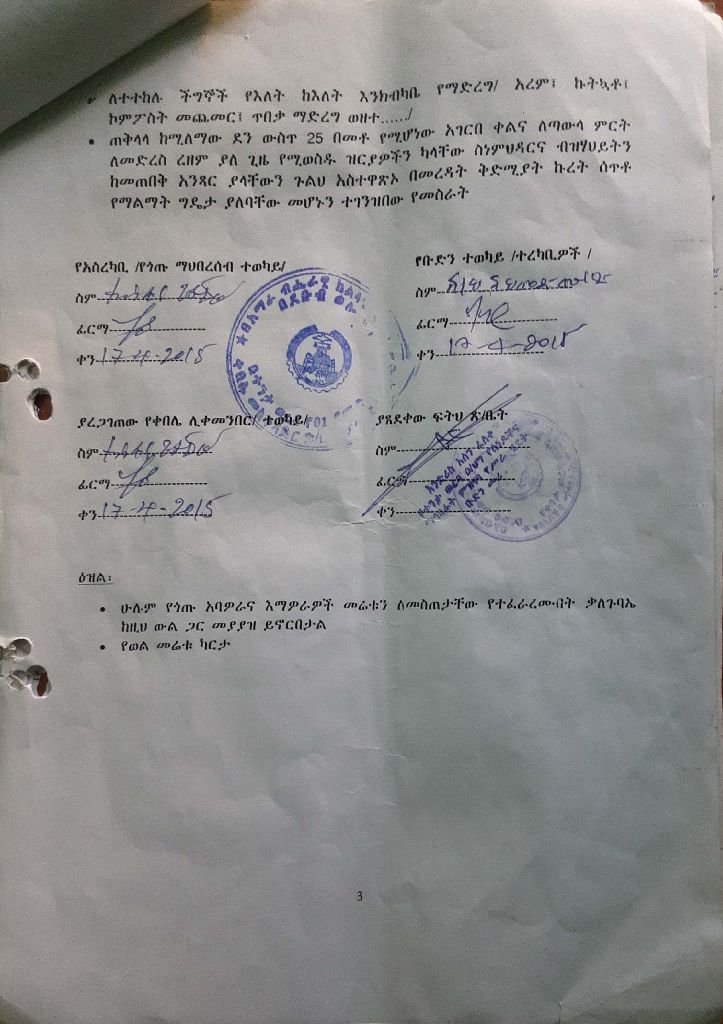 • ለተተከሉ ችግኞች የእለት ከእለት እንክብካቤ የማድረግ/ አረም፤ ኩትኳቶ፤
ኮምፖስት መጨመር፤ ጥበቃ ማድረግ ወዘተ....../
• ጠቅላላ ከሚለማው ደን ውስጥ 25 በመቶ የሚሆነው አገርበ ቀልና ለጣውላ ምርት
ለመድረስ ረዘም ያለ ጊዜ የሚወስዱ ዝርያዎችን ካላቸው ስነምህዳርና ብዝሃህይትን
ከመጠበቅ አንጻር ያላቸውን ጉልህ አስተዋጽኦ በመረዳት ቅድሚያት ኩረት ሰጥቶ
የማልማት ግዴታ ያለባቸው መሆኑን ተገንዝበው የመስራት
የአስረካቢ /የጎጡ ማህበረሰብ ተወካይ/
ስም
ፊርማ
ቀን 17-4-2015
የቡድን ተወካይ /ተረካቢዎች /
ስም
ፊርማ
ቀን 17-4-2015
ያረጋገጠው የቀበሌ ሊቀመንበር/ ተወካይ/
ስም
ፊርማ
ቀን 17-4-2015
ያጸደቀው ፍትህ ጽ/ቤት
ስም
ፊርማ
ቀን
ዕዝል፡
• ሁሉም የጎጡ አባዎራና እማዎራዎች መሬቱን ለመስጠታቸው የተፈራረሙበት ቃለጉባኤ
ከዚህ ውል ጋር መያያዝ ይኖርበታል
• የወል መሬቱ ካርታ
3